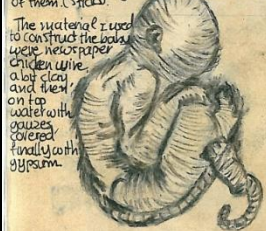 of them. (sticks).
The material I used
to construct the baby
were newspaper
chicken wire
a bit clay
and then
on top
water with
gauzes
covered
finally with
gypsum.